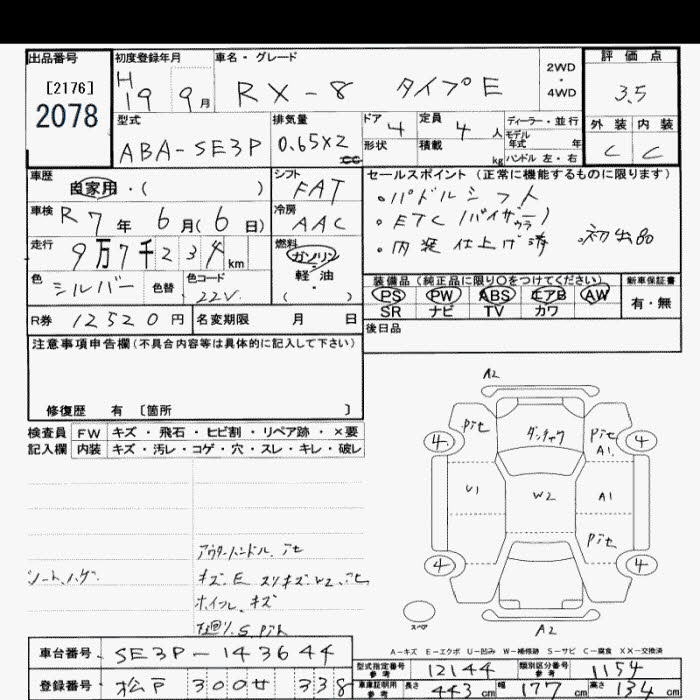 出品番号
[2176]
2078
初度登録年月
H
19 9月
車名・グレード
RX-8 タイプE
2WD
・
4WD
評価点
3.5
外装 内装
C C
型式
ABA-SE3P
排気量
0.65×2
cc
ドア 4
形状
定員 4 人
積載 kg
ディーラー・並行
モデル
年式 年
ハンドル 左・右
車歴
自家用・( )
シフト
FAT
車検 R7年 6月(6日)
冷房
AAC
走行
9万7千234km
燃料
ガソリン
軽・油
( )
色
シルバー
色替
色コード
22V
R券 12520円
名変期限 月 日
セールスポイント(正常に機能するものに限ります)
・パドルシフト
・ETC(バイザーウラ)
・内装仕上げ済 ・初出品
装備品(純正品に限り○をつけてください)
PS PW ABS エアB AW
SR ナビ TV カワ
新車保証書
有・無
後日品
注意事項申告欄(不具合内容等は具体的に記入して下さい)
修復歴 有 [箇所 ]
検査員
記入欄
FW キズ・飛石・ヒビ割・リペア跡・×要
内装 キズ・汚レ・コゲ・穴・スレ・キレ・破レ
シート ハゲ
アウターハンドル
キズ・E スリキズ・W2
ホイール キズ
A2
Pit Pit
A1
4 4
U1 W2 A1
Pit
4 4
スペア
A2
A-キズ E-エクボ U-凹み W-補修跡 S-サビ C-腐食 XX-交換済
車台番号 SE3P-143644
登録番号 松戸 300せ 338
型式指定番号
参考
12144
類別区分番号
参考
1154
車庫証明用
参考
長さ 443cm 幅 177cm 高さ 134cm